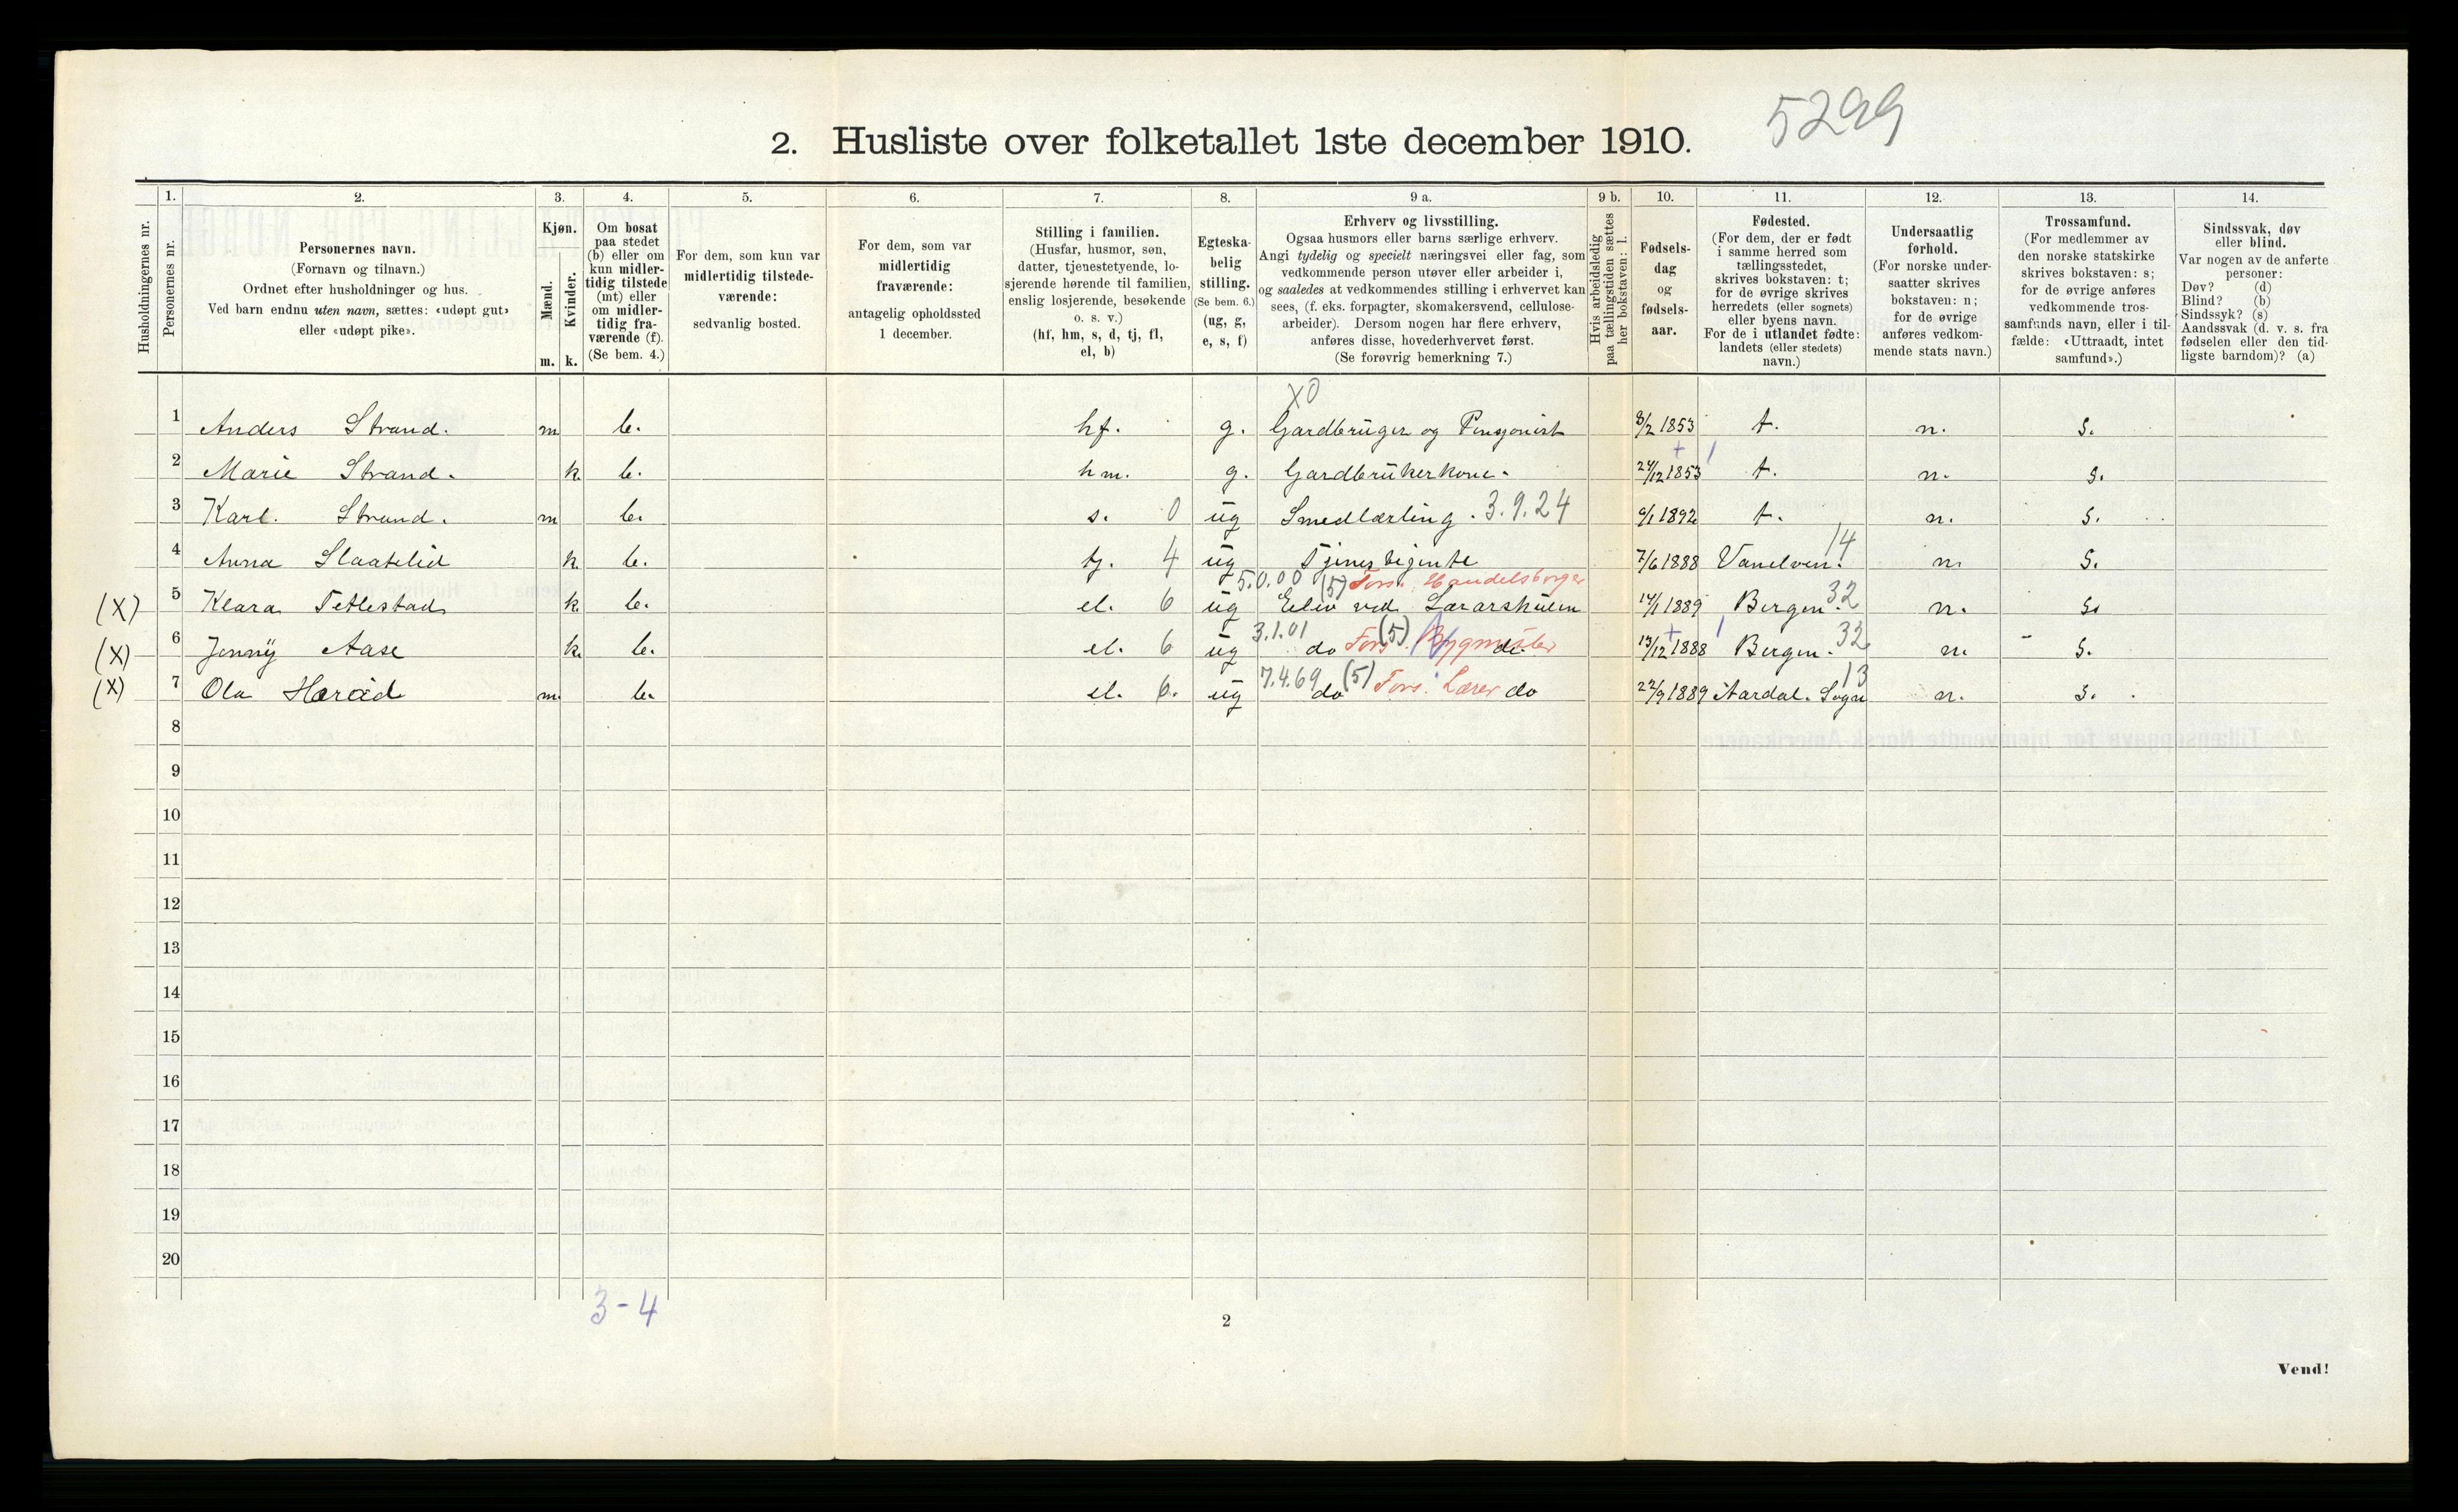 5299
2. Husliste over folketallet 1ste december 1910.
Husholdningernes nr.
1.
Personernes nr.
2.
Personernes navn.
(Fornavn og tilnavn.)
Ordnet efter husholdninger og hus.
Ved barn endnu uten navn, sættes: «udøpt gut»
eller «udøpt pike».
3.
Kjøn.
Mænd.
Kvinder.
m. k.
4.
Om bosat
paa stedet
(b) eller om
kun midler-
tidig tilstede
(mt) eller
om midler-
tidig fra-
værende (f).
(Se bem. 4.)
5.
For dem, som kun var
midlertidig tilstede-
værende:
sedvanlig bosted.
6.
For dem, som var
midlertidig
fraværende:
antagelig opholdssted
1 december.
7.
Stilling i familien.
(Husfar, husmor, søn,
datter, tjenestetyende, lo-
sjerende hørende til familien,
enslig losjerende, besøkende
o. s. v.)
(hf, hm, s, d, tj, fl,
el, b)
8.
Egteska-
belig
stilling.
(Se bem. 6.)
(ug, g,
e, s, f)
9 a.
Erhverv og livsstilling.
Ogsaa husmors eller barns særlige erhverv.
Angi tydelig og specielt næringsvei eller fag, som
vedkommende person utøver eller arbeider i,
og saaledes at vedkommendes stilling i erhvervet kan
sees, (f. eks. forpagter, skomakersvend, cellulose-
arbeider). Dersom nogen har flere erhverv,
anføres disse, hovederhvervet først.
(Se forøvrig bemerkning 7.)
9 b.
Hvis arbeidsledig
paa tællingstiden sættes
her bokstaven: l.
10.
Fødsels-
dag
og
fødsels-
aar.
11.
Fødested.
(For dem, der er født
i samme herred som
tællingsstedet,
skrives bokstaven: t;
for de øvrige skrives
herredets (eller sognets)
eller byens navn.
For de i utlandet fødte:
landets (eller stedets)
navn.)
12.
Undersaatlig
forhold.
(For norske under-
saatter skrives
bokstaven: n;
for de øvrige
anføres vedkom-
mende stats navn.)
13.
Trossamfund.
(For medlemmer av
den norske statskirke
skrives bokstaven: s;
for de øvrige anføres
vedkommende tros-
samfunds navn, eller i til-
fælde: «Uttraadt, intet
samfund».)
14.
Sindssvak, døv
eller blind.
Var nogen av de anførte
personer:
Døv? (d)
Blind? (b)
Sindssyk? (s)
Aandssvak (d. v. s. fra
fødselen eller den tid-
ligste barndom)? (a)
X0
1 Anders Strand. m b. hf. g. Gardbruger og Pensjonist 8/2 1853 t. n. s.
2 Marie Strand. k. b. hm. g. Gardbrukerkone. 24/12 1853 t. n. s.
3 Karl. Strand. m b. s. 0 ug Smedlærling. 3.9.24 6/1 1892 t. n. s.
4 Anna Slaatelid k. b. tj. 4 ug Tjenestejente 7/6 1888 Vanelven. 14 n. s.
5.0.00 (5) Fors. Handelsborger
(X) 5 Klara Tetlestad k. b. el. 6 ug Elev ved Lærarskulen 14/1 1889 Bergen. 32 n. s.
(X) 6 Jenny Aase k. b. el. 6 ug 3.1.01 do (5) Fors. Bygmester do 13/12 1888 Bergen. 32 n. s.
(X) 7 Ola Hæraid m. b. el. 6. ug 7.4.69 do (5) Fors. Lærer do 22/9 1889 Aardal. Sogn 13 n. s.
8
9
10
11
12
13
14
15
16
17
18
19
20
3-4
2
Vend!